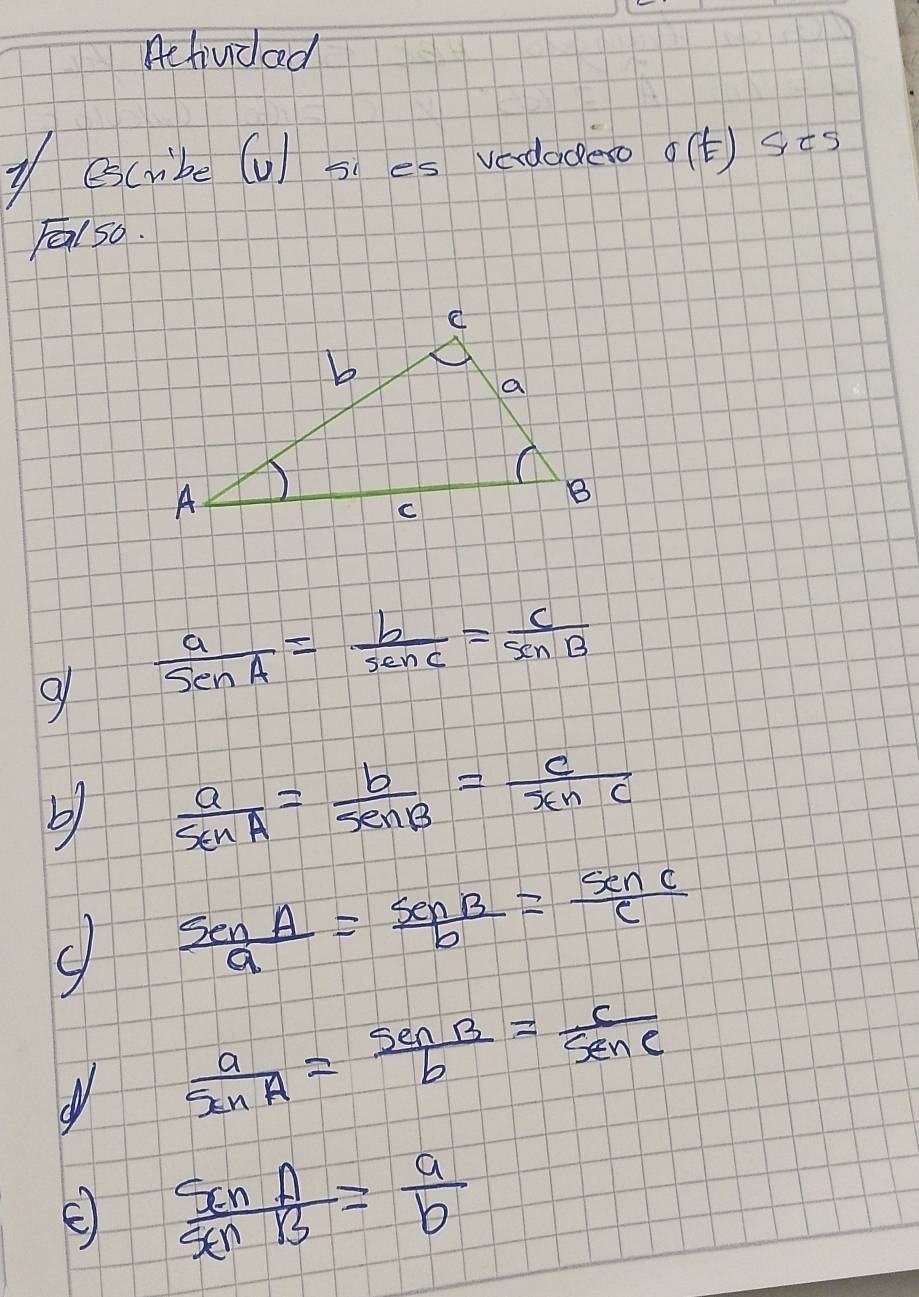 Actividad
1/ escribe (v) si es verdadero o (F) si es
Falso.
C
b
a
A
B
c
a) a/Sen A = b/sen C = c/sen B
b) a/Sen A = b/sen B = c/sen C
c) Sen A/a = sen B/b = sen C/c
d) a/Sen A = sen B/b = c/sen C
e) Sen A/sen B = a/b